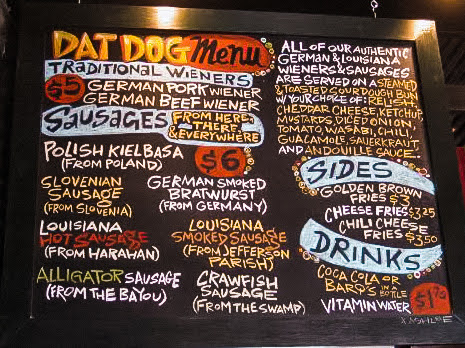 DAT DOG Menu
TRADITIONAL WIENERS
$5 GERMAN PORK WIENER
GERMAN BEEF WIENER
SAUSAGES FROM HERE, THERE & EVERYWHERE
POLISH KIELBASA
(FROM POLAND)
$6
SLOVENIAN
SAUSAGE
(FROM SLOVENIA)
GERMAN SMOKED
BRATWURST
(FROM GERMANY)
LOUISIANA
HOT SAUSAGE
(FROM HARAHAN)
LOUISIANA
SMOKED SAUSAGE
(FROM JEFFERSON
PARISH)
ALLIGATOR SAUSAGE
(FROM THE BAYOU)
CRAWFISH
SAUSAGE
(FROM THE SWAMP)
ALL OF OUR AUTHENTIC
GERMAN & LOUISIANA
WIENERS & SAUSAGES
ARE SERVED ON A STEAMED
& TOASTED SOURDOUGH BUN
W/YOUR CHOICE OF: RELISH,
CHEDDAR CHEESE, KETCHUP,
MUSTARDS, DICED ONION,
TOMATO, WASABI, CHILI,
GUACAMOLE, SAUERKRAUT,
AND ANDOUILLE SAUCE.
SIDES
GOLDEN BROWN
FRIES $3
CHEESE FRIES $3.25
CHILI CHEESE
FRIES $3.50
DRINKS
COCA COLA OR
BARQ'S IN A BOTTLE
VITAMIN WATER $1.75